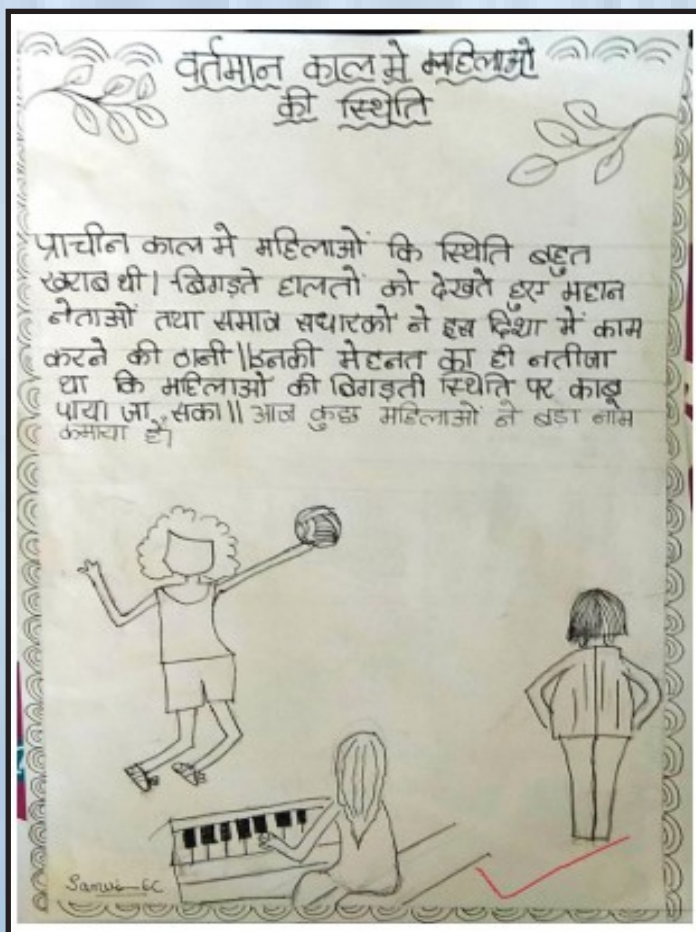 वर्तमान काल मे महिलाओ
की स्थिति
प्राचीन काल मे महिलाओं कि स्थिति बहुत
खराब थी। बिगड़ते हालतों को देखते हुए महान
नेताओं तथा समाज सधारको ने इस दिशा में काम
करने की ठानी॥इनकी मेहनत का ही नतीजा
था कि महिलाओ की बिगड़ती स्थिति पर काबू
पाया जा सका॥ आज कुछ महिलाओ ने बड़ा नाम
कमाया है।
Sanvi-6C